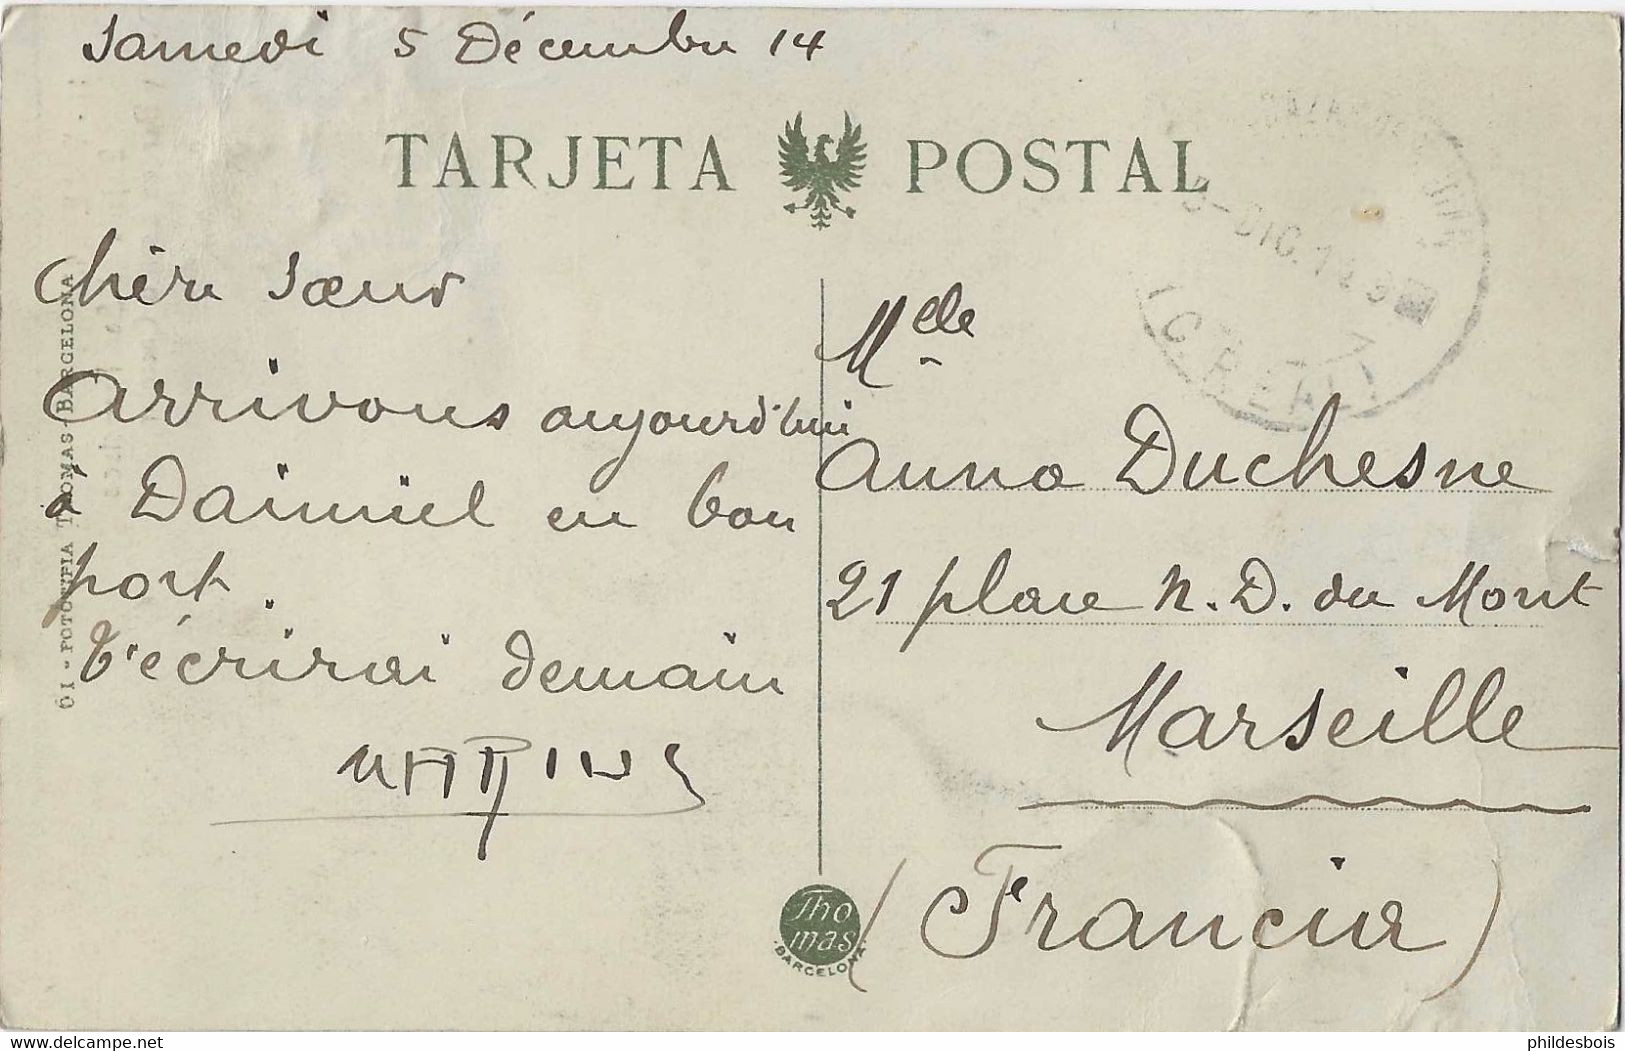 Samedi 5 Décembre 14
TARJETA POSTAL
Chère Soeur
Arrivons aujourd'hui
à Daimiel en bon
port.
T'écrirai demain
MARIUS
Melle
Anna Duchesne
21 place N. D. du Mont
Marseille
(Francia)
FOTOTIPIA THOMAS - BARCELONA
Thomas
BARCELONA
DIC.14
C. REAL
delcampe.net
phildesbois